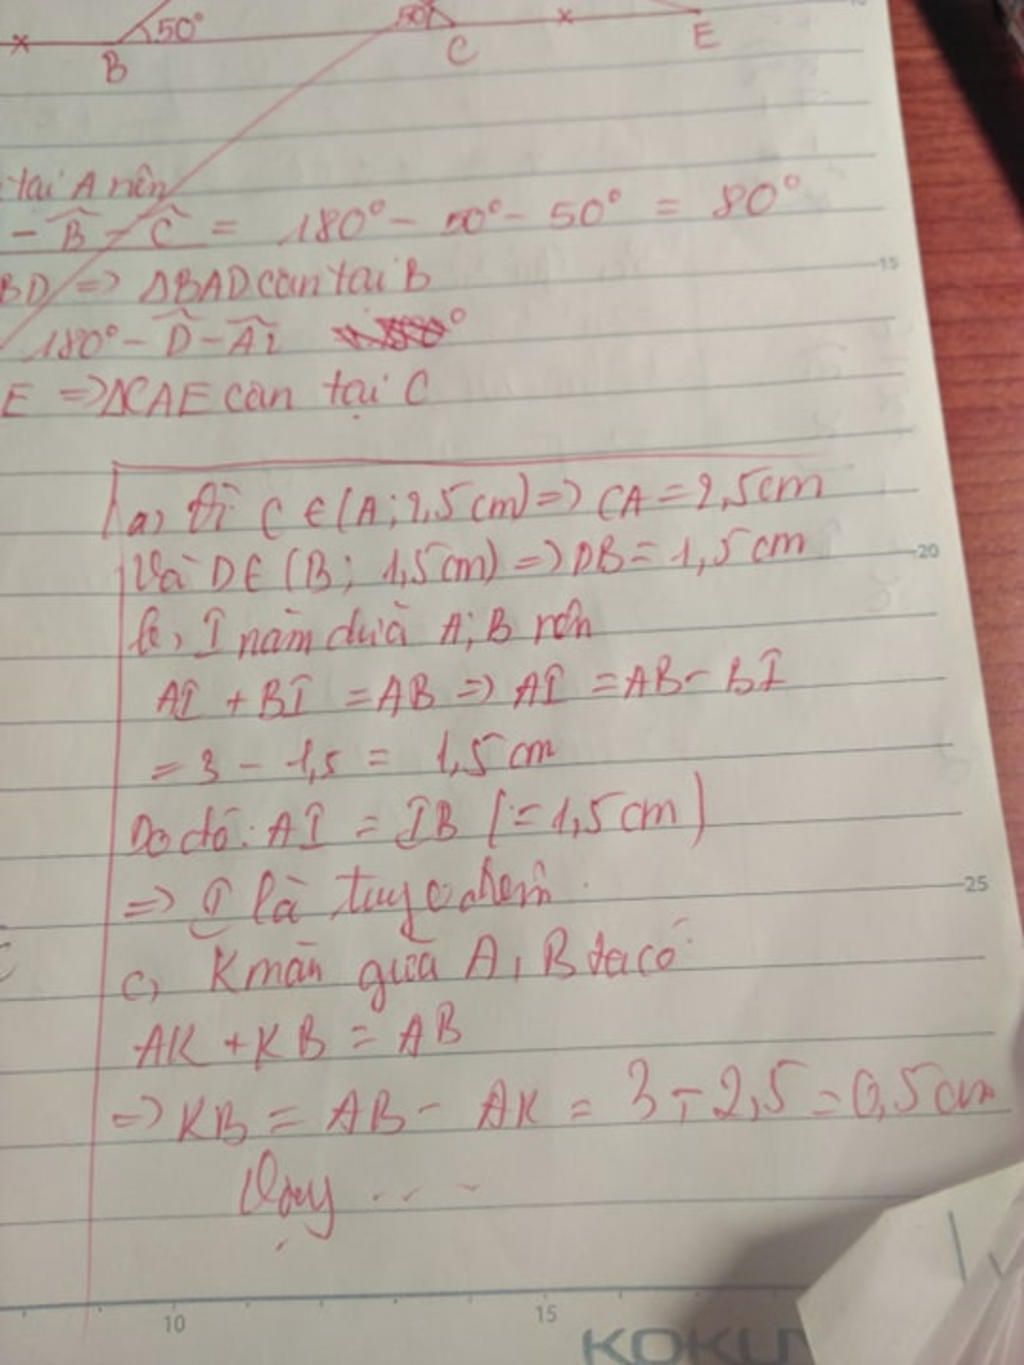 50° 50°
B C E
tại A nên
- B̂ - Ĉ = 180° - 50° - 50° = 80°
BD => ΔBAD cân tại B
180° - D̂ - Â1
E => ΔCAE cân tại C
15
a, Vì C ∈ (A; 2,5cm) => CA = 2,5cm
Và D ∈ (B; 1,5cm) => DB = 1,5cm
20
b, I nằm giữa A; B nên
AI + BI = AB => AI = AB - BI
= 3 - 1,5 = 1,5 cm
Do đó: AI = IB (= 1,5cm)
=> I là
25
c, K nằm giữa A, B ta có
AK + KB = AB
=> KB = AB - AK = 3 - 2,5 = 0,5cm
Vậy ...
10 15
KOKU